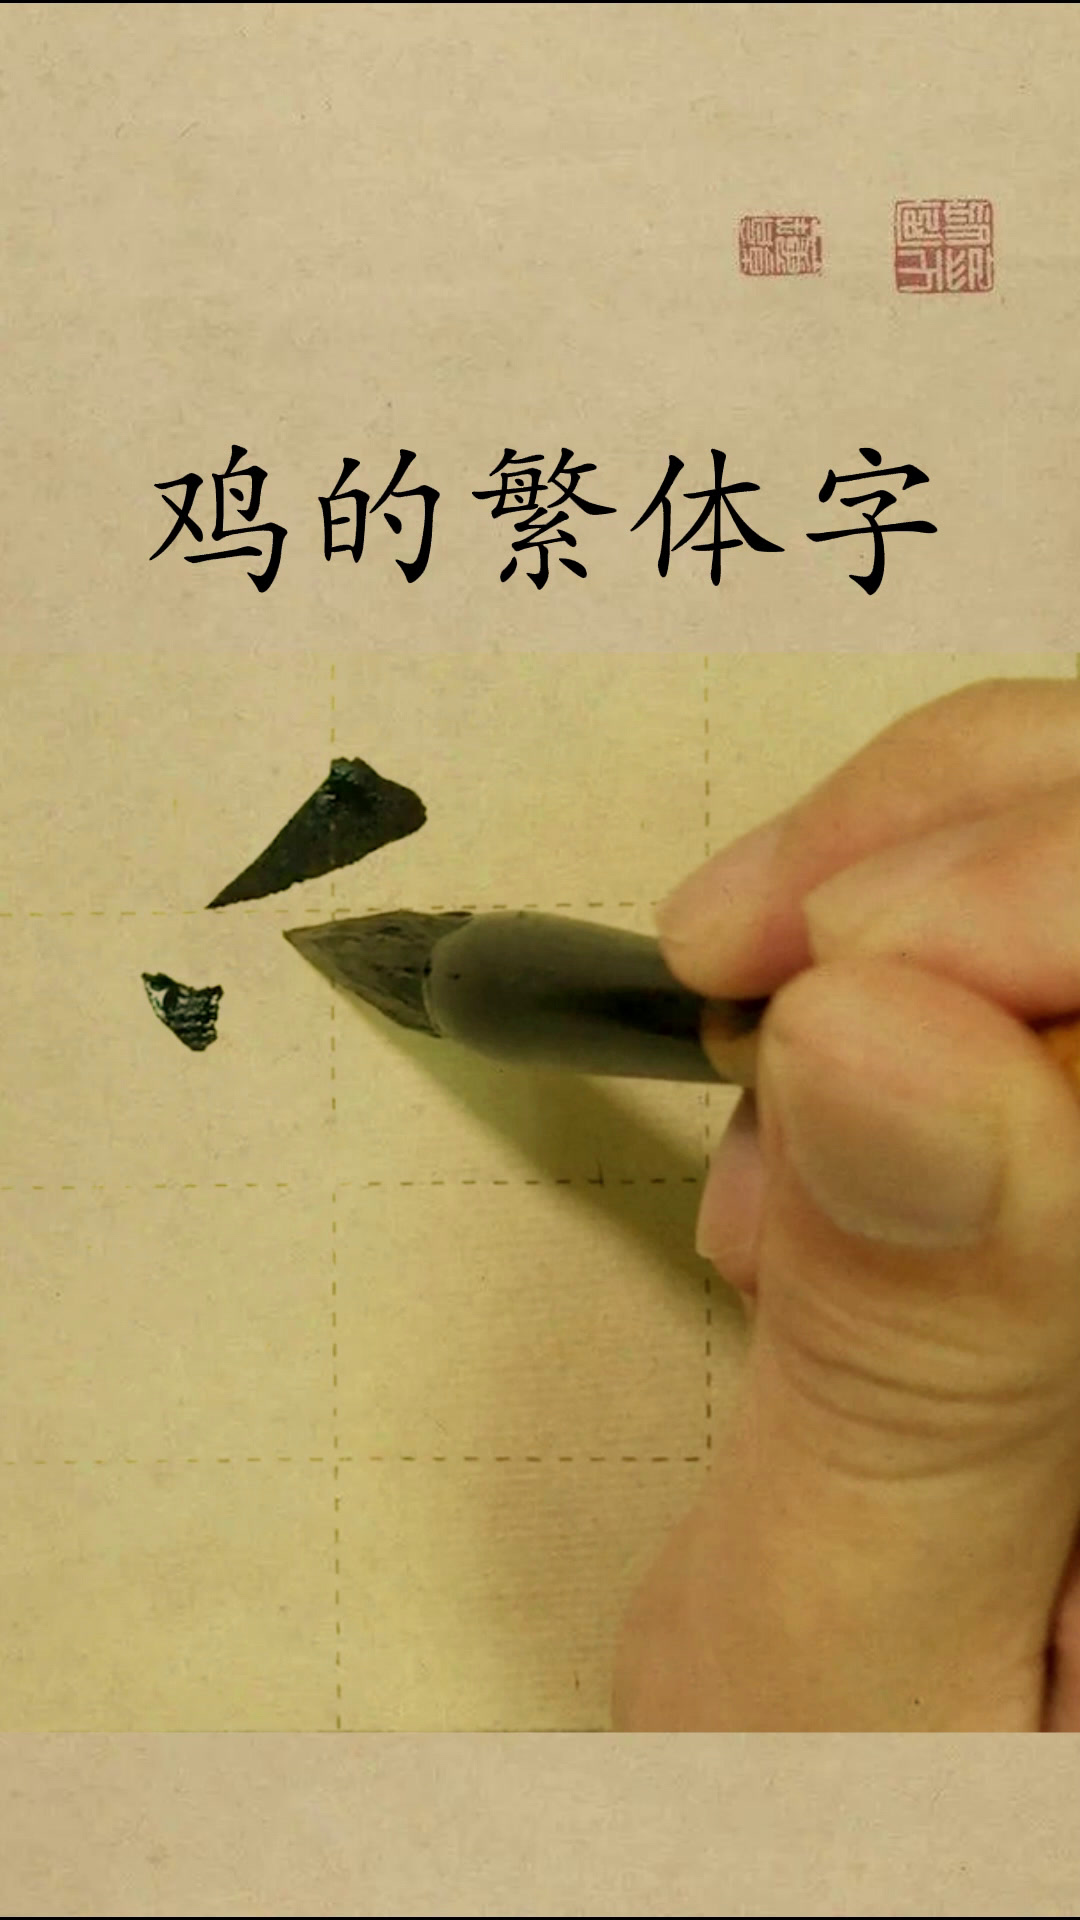 鸡的繁体字